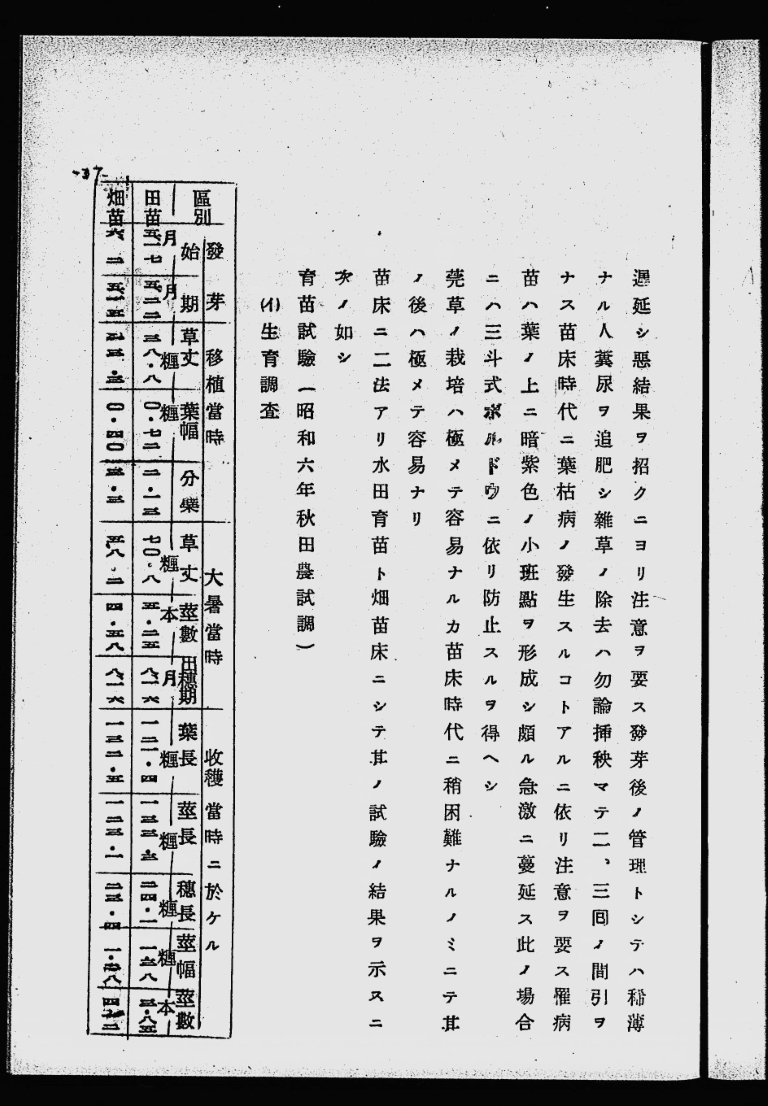 遲延シ惡結果ヲ招クニヨリ注意ヲ要ス發芽後ノ管理トシテハ稀薄
ナル人糞尿ヲ追肥シ雜草ノ除去ハ勿論揷秧マテ二、三囘ノ間引ヲ
ナス苗床時代ニ葉枯病ノ發生スルコトアルニ依リ注意ヲ要ス罹病
苗ハ葉ノ上ニ暗紫色ノ小斑點ヲ形成シ頗ル急激ニ蔓延ス此ノ場合
ニハ三斗式ボルドウニ依リ防止スルヲ得ヘシ
莞草ノ栽培ハ極メテ容易ナルカ苗床時代ニ稍困難ナルノミニテ其
ノ後ハ極メテ容易ナリ
苗床ニ二法アリ水田育苗ト畑苗床ニシテ其ノ試驗ノ結果ヲ示スニ
次ノ如シ
育苗試驗(昭和六年秋田農試調)
(イ)生育調査
區別 發芽 移植當時 大暑當時 收穫當時ニ於ケル
始 期 草丈 葉幅 分櫱 草丈 莖數 出穗期 葉長 莖長 穗長 莖幅 莖數
月 月 糎 糎 糎 本 月 糎 糎 糎 糎 本
田苗 五、一七 五、二二 三八・八 〇・七二 二・一三 七〇・八 五・二五 八、一六 一二一・四 一三三・六 二四・一 一・六八 三・八五
畑苗 六、二 〇・四〇 五八・二 四・五八 八、一六 一三二・五 一二三・一 二三・四
-37-